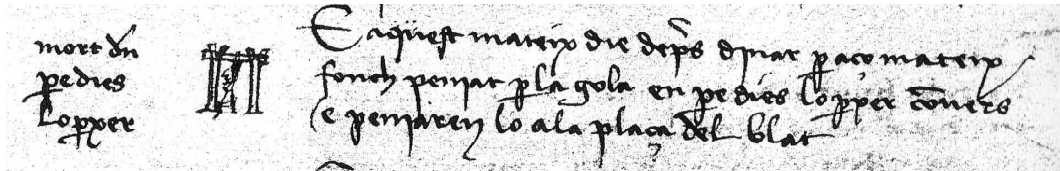 mort dn
pedies
lopxer
E aquest mateix die deps dinar p aço mateix
fonch penjat p la gola en pedies lopxer convers
e penjaren lo ala plaça del blat